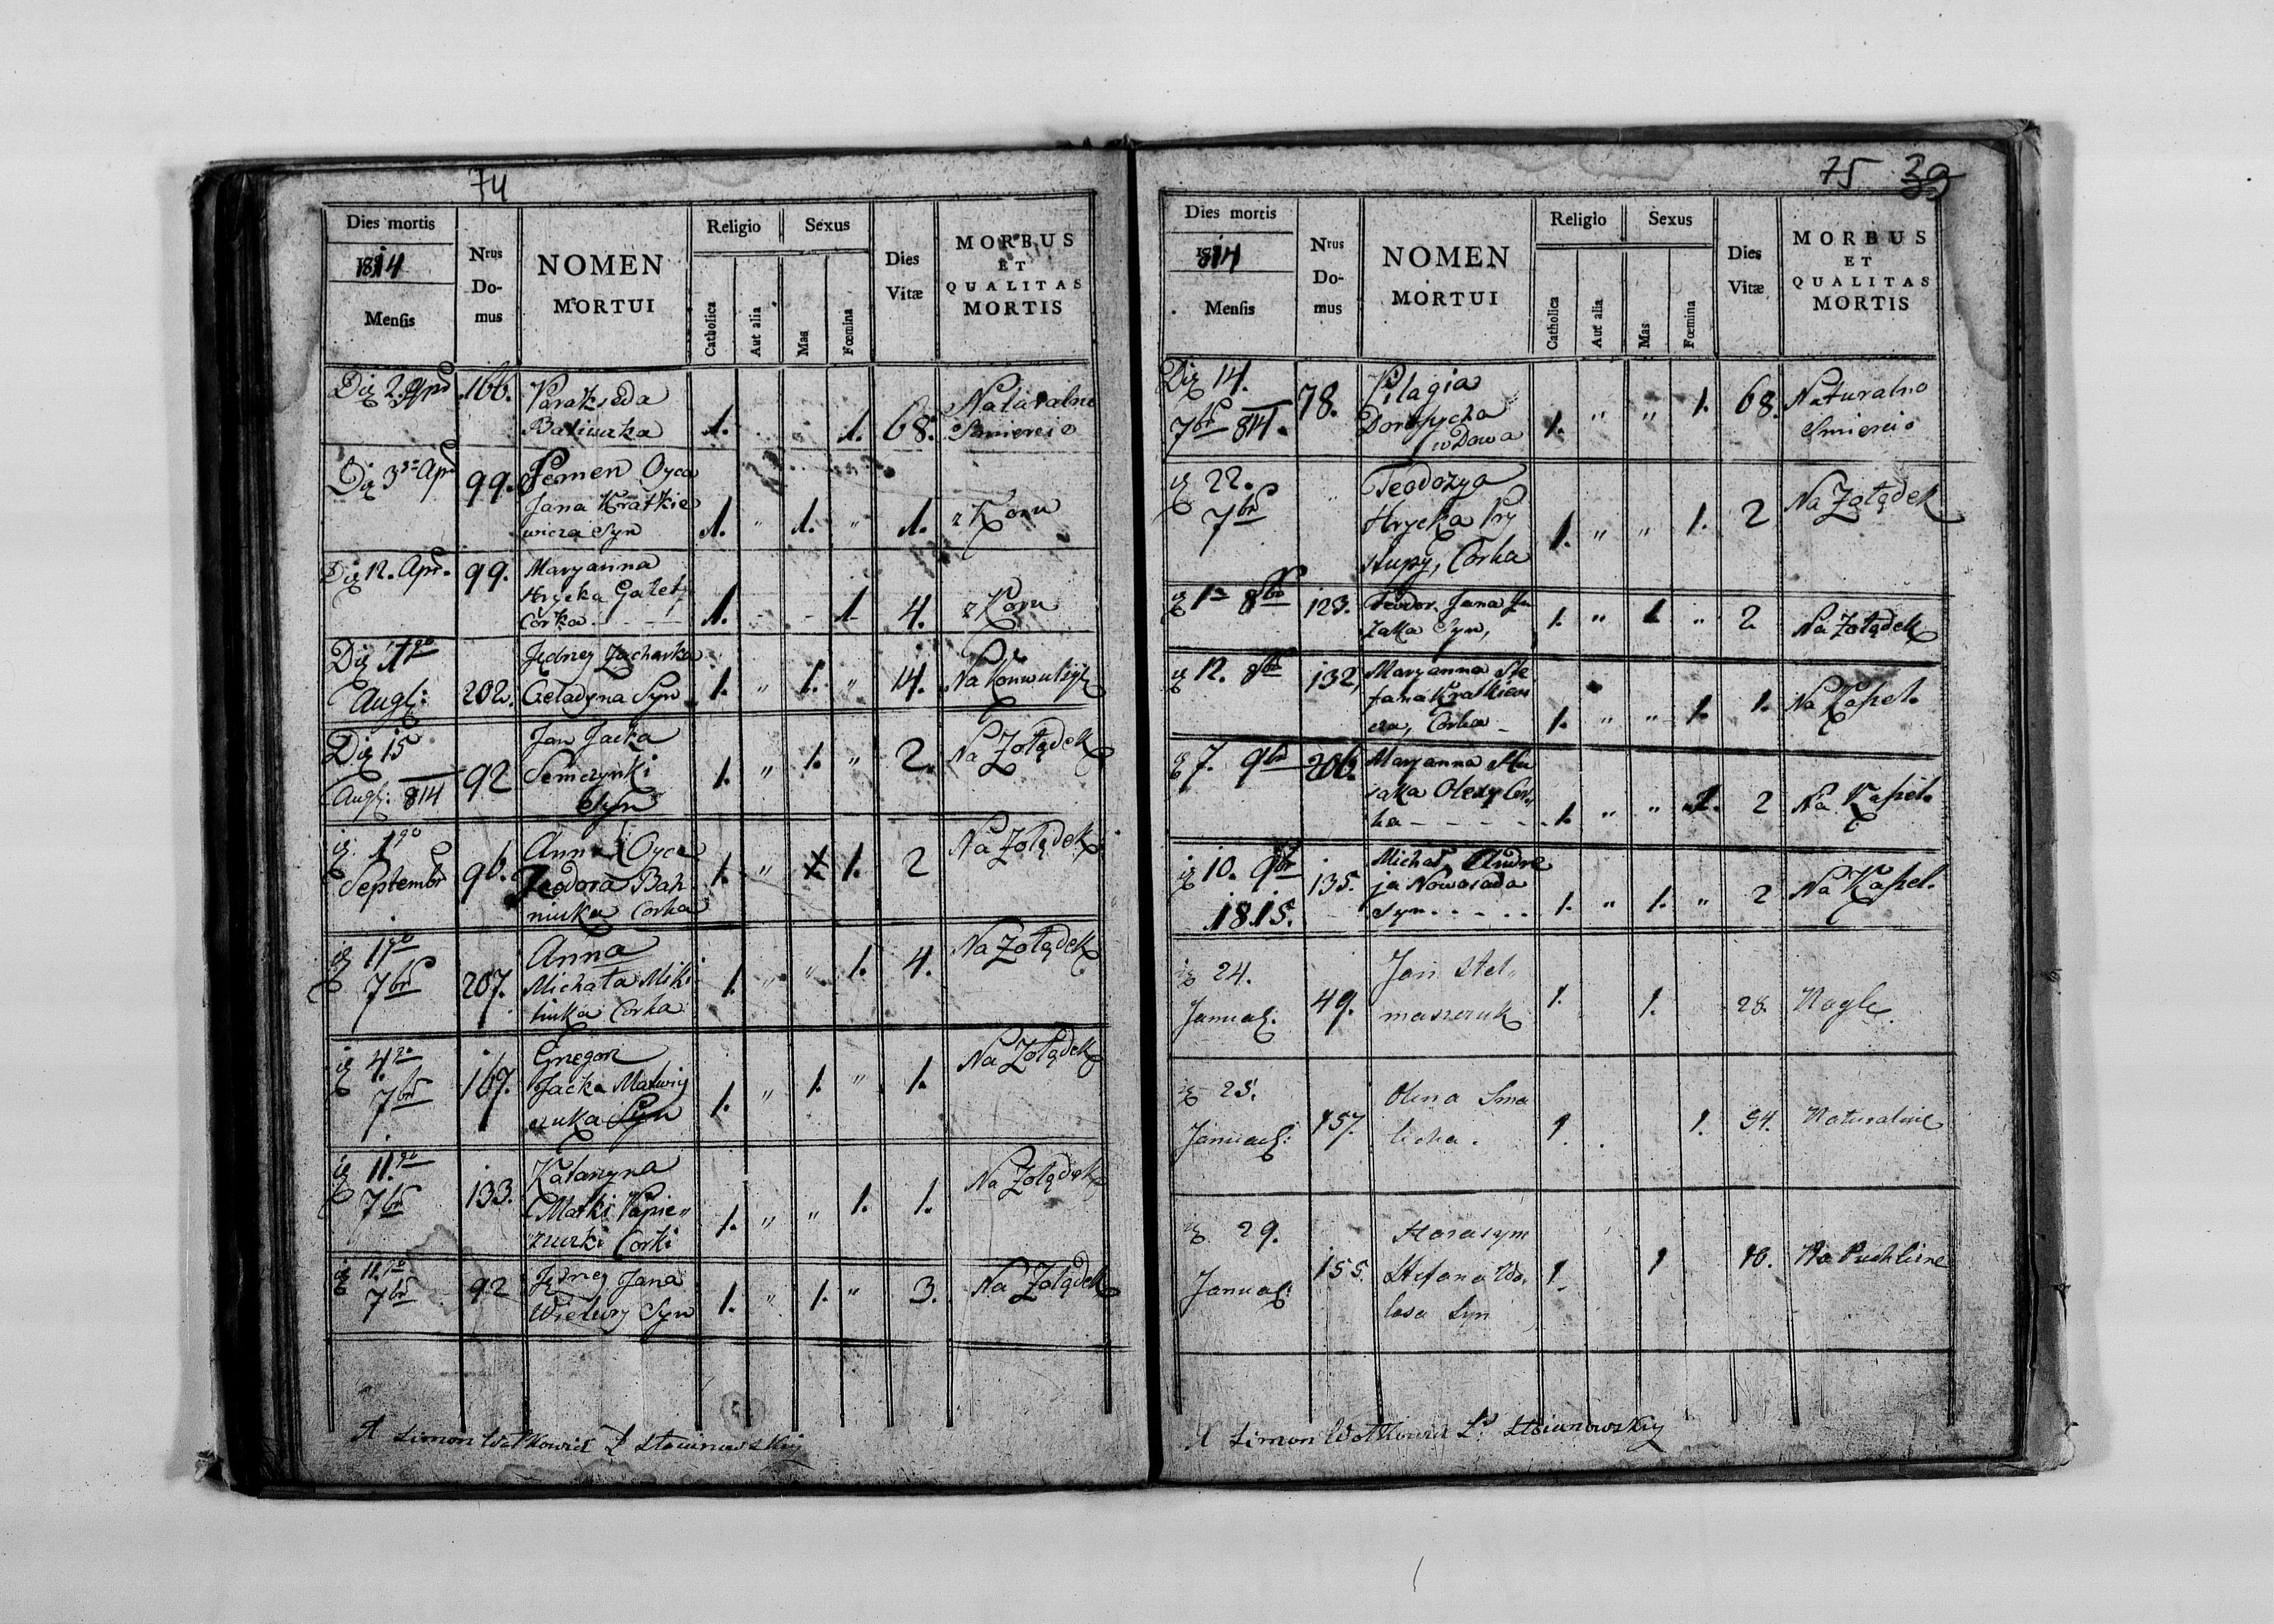 74
Dies mortis
1814
Menſis
Nrus
Do-
mus
NOMEN
MORTUI
Religio
Catholica
Aut alia
Sexus
Mas
Fœmina
Dies
Vitæ
MORBUS
ET
QUALITAS
MORTIS
Dią 2. Apr 166. Parakseda
1. 1. 68. Naturalno
Smiercio
Dią 3. Apr 99. Semen Oyca
Jana Kratkie
wicza Syn 1. " 1. " 1. z Koru
Dią 12. Apr. 99. Maryanna
Hrycka
Corka 1. - - 1 4. z Koru
Dią 1go
Augl: 202. Jędrzey Zacharka
Geladyna Syn 1. " 1. " 14. Na
Dią 15
Augl: 814 92 Jan Jacka
Semczynki
Syn 1. " 1. " 2. Na Zołądek
ią 1go
Septembr 96. Anna Oyca
Teodora Bah
niuka Corka 1. " 1. 2 Na Zołądek
ią 1go
7br 207. Anna
Michała Miki
tiuka Corka 1. " " 1. 4. Na Zołądek
ią 4go
7br 167. Gregor
Jacka Matwiy
czuka Syn 1. " 1. " 1. Na Zołądek
ią 11go
7br 133. Katarzyna
Matki Papie"
Corki 1. " " 1. 1. Na Zołądek
ią 11go
7br 92 Jędrzey Jana
Syn 1. " 1. " 3. Na Zołądek
X Simon Wolkowicz P Stoianowskiy
75 39
Dies mortis
1814
Menſis
Nrus
Do-
mus
NOMEN
MORTUI
Religio
Catholica
Aut alia
Sexus
Mas
Fœmina
Dies
Vitæ
MORBUS
ET
QUALITAS
MORTIS
Dią 14.
7br 814. 78. Pilagia
wdowa 1. " " 1. 68. Naturalno
Smiercio
ią 22.
7br " Teodozya
Hrycka Pry
stupy, Corka 1. " " 1. 2 Na Zołądek
ią 1 8br 123. Teodor Jana
Syn, 1. " 1. " 2 Na Zołądek
ią 12. 8br 132, Maryanna Ste
fana Kratkiew
cza, Corka 1. " " 1. 1. Na Kaszel.
ią 7. 9br 206. Maryanna
Olexy Cor
ka 1. " " 1. 2 Na Kaszel.
ią 10. 9br 135. Michał Andre
ja Nowosada
Syn 1. " 1. " 2 Na Kaszel.
1815.
ią 24.
Januar. 49. Jan Stel"
maszczuk 1. 1. 28. Nagle.
ią 25.
Januar: 157. Olena Sma
licha. 1. 1. 54. Naturalnie
ią 29.
Januar: 155. Harasym
Stefana Wo,
losa Syn 1 1 10. Na Puchline
X Simon Wolkowicz P. Stoianowskiy